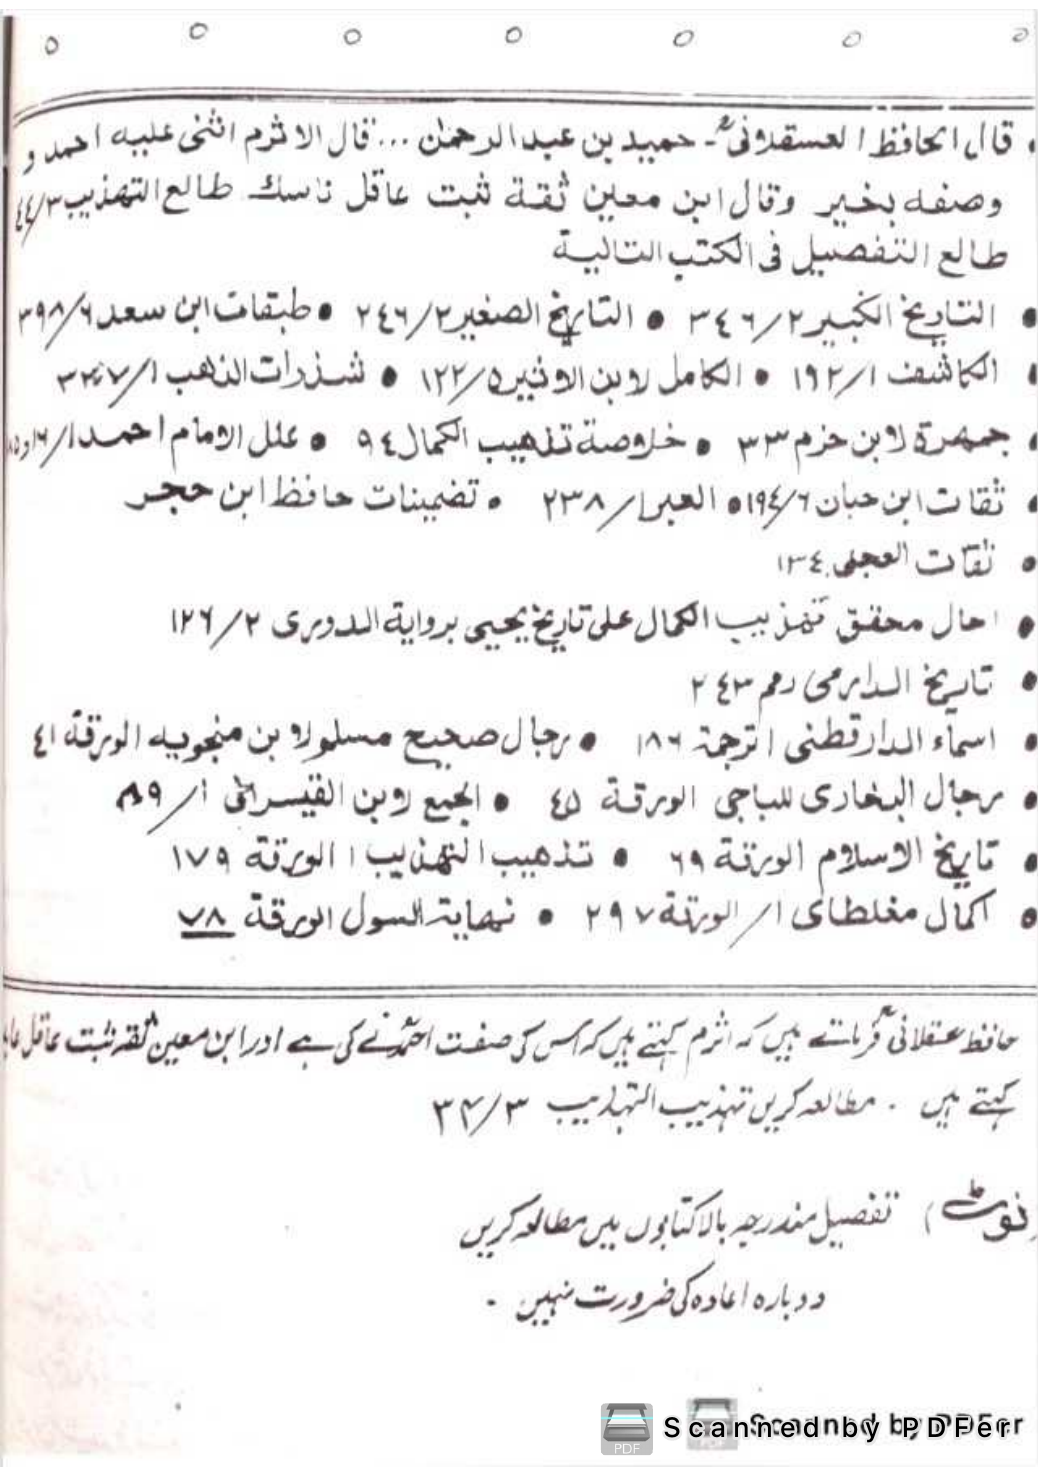 قال الحافظ العسقلانیؒ ـ حمید بن عبد الرحمٰن ... قال الاثرم اثنی علیه احمد و
وصفه بخیر وقال ابن معین ثقة ثبت عاقل ناسك طالع التهذیب ٣/٤٤
طالع التفصیل فی الکتب التالیة
• التاریخ الکبیر ٢/٣٤٦ • التاریخ الصغیر ٢/٢٤٦ • طبقات ابن سعد ٦/٣٩٨
• الکاشف ١/١٩٢ • الکامل لابن الاثیر ٥/١٢٢ • شذرات الذهب ١/
• جمهرة لابن حزم ٣٣ • خلاصة تذهیب الکمال ٩٤ • علل الامام احمد ١/
• ثقات ابن حبان ٦/١٩٤ • العبر ١/٢٣٨ • تضمینات حافظ ابن حجر
• ثقات العجلی ١٣٤
• احال محقق تهذیب الکمال علی تاریخ یحیی بروایة الدوری ٢/١٢٦
• تاریخ الدارمی رقم ٢٤٣
• اسماء الدارقطنی الترجمة ١٨٦ • رجال صحیح مسلم لابن منجویه الورقة ٤١
• رجال البخاری للباجی الورقة ٤٥ • الجمع لابن القیسرانی ١/
• تاریخ الاسلام الورقة ٦٩ • تذهیب التهذیب ١ الورقة ١٧٩
• اکمال مغلطای ١/الورقة ٢٩٧ • نهایة السول الورقة ٧٨
حافظ عسقلانیؒ فرماتے ہیں کہ اثرم کہتے ہیں کہ اس کی صفت احمدؒ نے کی ہے اور ابن معینؒ ثقہ ثبت عاقل
کہتے ہیں ۔ مطالعہ کریں تہذیب التہذیب ٣/٣٤
(نوٹ) تفصیل مندرجہ بالا کتابوں میں مطالعہ کریں
دوبارہ اعادہ کی ضرورت نہیں ۔
Scanned by PDFer
Scanned by PDFer